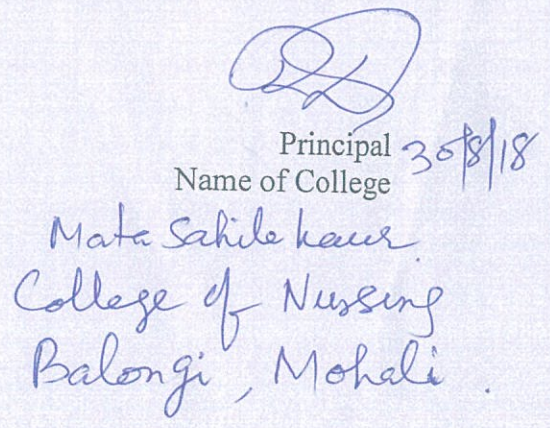 Principal 30/8/18
Name of College
Mata Sahib Kaur
College of Nursing
Balongi, Mohali.